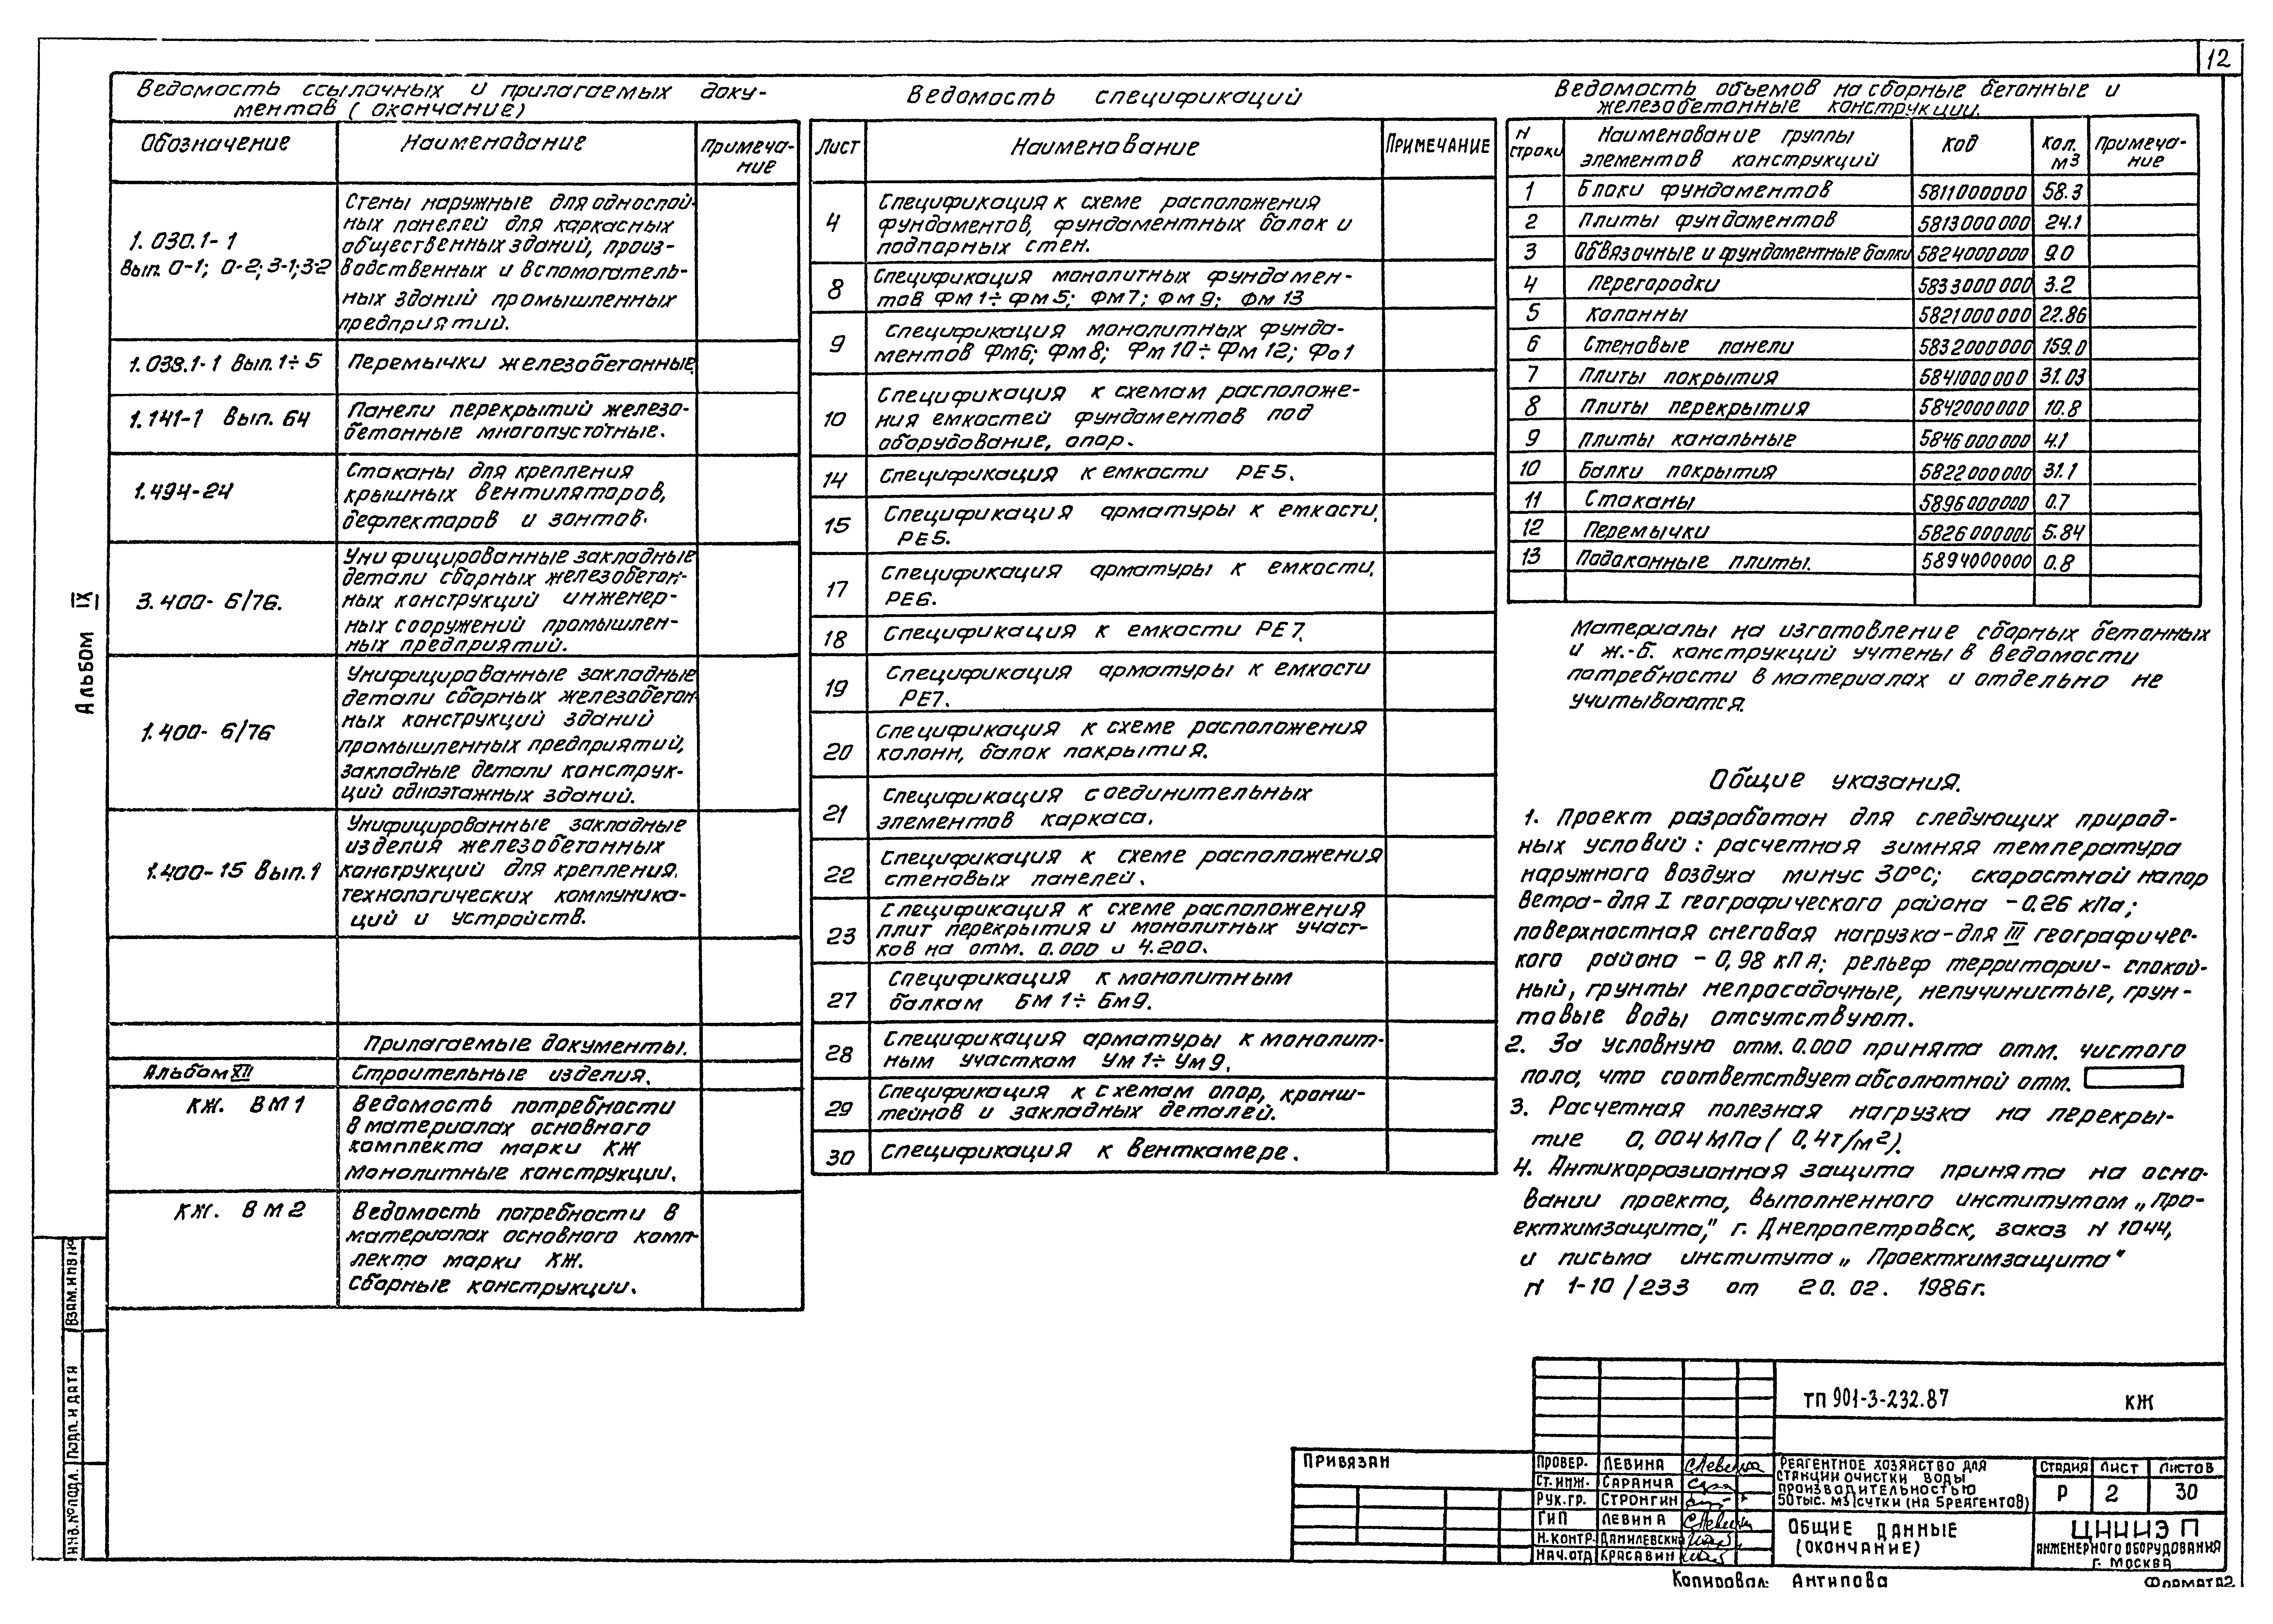 12
Ведомость ссылочных и прилагаемых доку-
ментов (окончание)
Обозначение
Наименование
Примеча-
ние
1.030.1-1
Вып. 0-1; 0-2; 3-1; 3-2
Стены наружные для однослой-
ных панелей для каркасных
общественных зданий, произ-
водственных и вспомогатель-
ных зданий промышленных
предприятий.
1.038.1-1 Вып. 1÷5
Перемычки железобетонные.
1.141-1 Вып. 64
Панели перекрытий железо-
бетонные многопустотные.
1.494-24
Стаканы для крепления
крышных вентиляторов,
дефлекторов и зонтов.
3.400-6/76.
Унифицированные закладные
детали сборных железобетон-
ных конструкций инженер-
ных сооружений промышлен-
ных предприятий.
1.400-6/76
Унифицированные закладные
детали сборных железобетон-
ных конструкций зданий
промышленных предприятий,
закладные детали конструк-
ций одноэтажных зданий.
1.400-15 Вып.1
Унифицированные закладные
изделия железобетонных
конструкций для крепления.
технологических коммуника-
ций и устройств.
Прилагаемые документы.
Альбом XII
Строительные изделия.
КЖ. ВМ1
Ведомость потребности
в материалах основного
комплекта марки КЖ
Монолитные конструкции.
КЖ. ВМ2
Ведомость потребности в
материалах основного комп-
лекта марки КЖ.
Сборные конструкции.
Ведомость спецификаций
Лист
Наименование
ПРИМЕЧАНИЕ
4
Спецификация к схеме расположения
фундаментов, фундаментных балок и
подпорных стен.
8
Спецификация монолитных фундамен-
тов Фм1÷Фм5; Фм7; Фм9; Фм13
9
Спецификация монолитных фунда-
ментов Фм6; Фм8; Фм10÷Фм12; Фо1
10
Спецификация к схемам расположе-
ния емкостей фундаментов под
оборудование, опор.
14
Спецификация к емкости РЕ5.
15
Спецификация арматуры к емкости.
РЕ5.
17
Спецификация арматуры к емкости.
РЕ6.
18
Спецификация к емкости РЕ7.
19
Спецификация арматуры к емкости
РЕ7.
20
Спецификация к схеме расположения
колонн, балок покрытия.
21
Спецификация соединительных
элементов каркаса.
22
Спецификация к схеме расположения
стеновых панелей.
23
Спецификация к схеме расположения
плит перекрытия и монолитных участ-
ков на отм. 0.000 и 4.200.
27
Спецификация к монолитным
балкам БМ1÷БМ9.
28
Спецификация арматуры к монолит-
ным участкам Ум1÷Ум9.
29
Спецификация к схемам опор, кронш-
тейнов и закладных деталей.
30
Спецификация к Венткамере.
Ведомость объемов на сборные бетонные и
железобетонные конструкции.
N
строки
Наименование группы
элементов конструкций
Код
Кол.
м3
Примеча-
ние
1 Блоки фундаментов 5811000000 58.3
2 Плиты фундаментов 5813000000 24.1
3 Обвязочные и фундаментные балки 5824000000 9.0
4 Перегородки 5833000000 3.2
5 Колонны 5821000000 22.86
6 Стеновые панели 5832000000 159.0
7 Плиты покрытия 5841000000 31.03
8 Плиты перекрытия 5842000000 10.8
9 Плиты канальные 5846000000 4.1
10 Балки покрытия 5822000000 31.1
11 Стаканы 5896000000 0.7
12 Перемычки 5826000000 5.84
13 Подоконные плиты. 5894000000 0.8
Материалы на изготовление сборных бетонных
и ж.-б. конструкций учтены в Ведомости
потребности в материалах и отдельно не
учитываются.
Общие указания.
1. Проект разработан для следующих природ-
ных условий: расчетная зимняя температура
наружного воздуха минус 30°С; скоростной напор
Ветра-для I географического района -0.26 кПа;
поверхностная снеговая нагрузка-для III географичес-
кого района - 0,98 кПа; рельеф территории- спокой-
ный, грунты непросадочные, непучинистые, грун-
товые воды отсутствуют.
2. За условную отм. 0.000 принята отм. чистого
пола, что соответствует абсолютной отм.
3. Расчетная полезная нагрузка на перекры-
тие 0,004МПа (0,4т/м2).
4. Антикоррозионная защита принята на осно-
вании проекта, выполненного институтом „Про-
ектхимзащита," г. Днепропетровск, заказ N 1044,
и письма института „Проектхимзащита"
N 1-10/233 от 20.02.1986г.
Альбом IX
Взам.инв.№
Подп. и дата
Инв.№подл.
Привязан
ТП 901-3-232.87 КЖ
Провер. Левина
Ст.инж. Саранча
Рук.гр. Стронгин
ГИП Левина
Н.контр. Данилевский
Нач.отд Красавин
Реагентное хозяйство для
станции очистки воды
производительностью
50тыс. м3/сутки (на 5реагентов)
Стадия Лист Листов
Р 2 30
Общие данные
(окончание)
ЦНИИЭП
инженерного оборудования
г. Москва
Копировал: Антипова
Формат А2